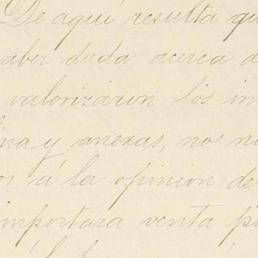 De aquí resulta qu
aber duda acerca d
valorizaron los in
ina y anexas, nos
os á la opinion de
importara venta po